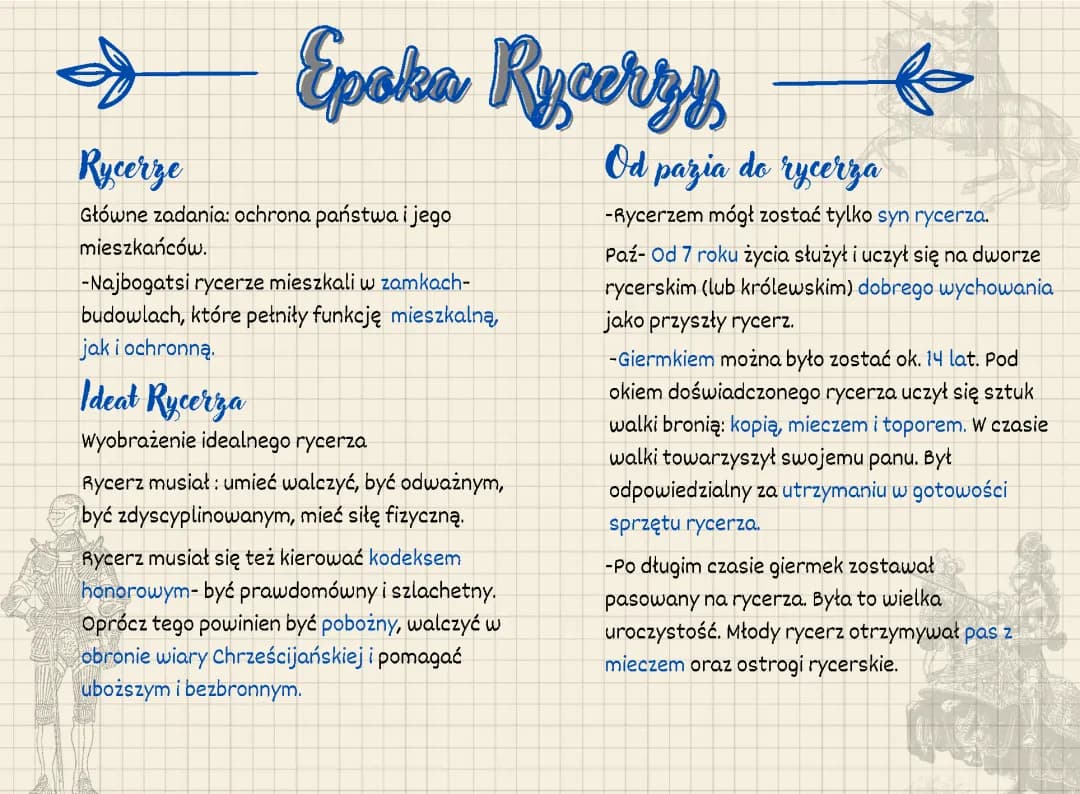 Epoka Rycerzy
Rycerze
Główne zadania: ochrona państwa i jego
mieszkańców.
-Najbogatsi rycerze mieszkali w zamkach-
budowlach, które pełniły funkcję mieszkalną,
jak i ochronną.
Ideał Rycerza
Wyobrażenie idealnego rycerza
Rycerz musiał : umieć walczyć, być odważnym,
być zdyscyplinowanym, mieć siłę fizyczną.
Rycerz musiał się też kierować kodeksem
honorowym- być prawdomówny i szlachetny.
Oprócz tego powinien być pobożny, walczyć w
obronie wiary Chrześcijańskiej i pomagać
uboższym i bezbronnym.
Od pazia do rycerza
-Rycerzem mógł zostać tylko syn rycerza.
Paź- Od 7 roku życia służył i uczył się na dworze
rycerskim (lub królewskim) dobrego wychowania
jako przyszły rycerz.
-Giermkiem można było zostać ok. 14 lat. Pod
okiem doświadczonego rycerza uczył się sztuk
walki bronią: kopią, mieczem i toporem. W czasie
walki towarzyszył swojemu panu. Był
odpowiedzialny za utrzymaniu w gotowości
sprzętu rycerza.
-Po długim czasie giermek zostawał
pasowany na rycerza. Była to wielka
uroczystość. Młody rycerz otrzymywał pas z
mieczem oraz ostrogi rycerskie.